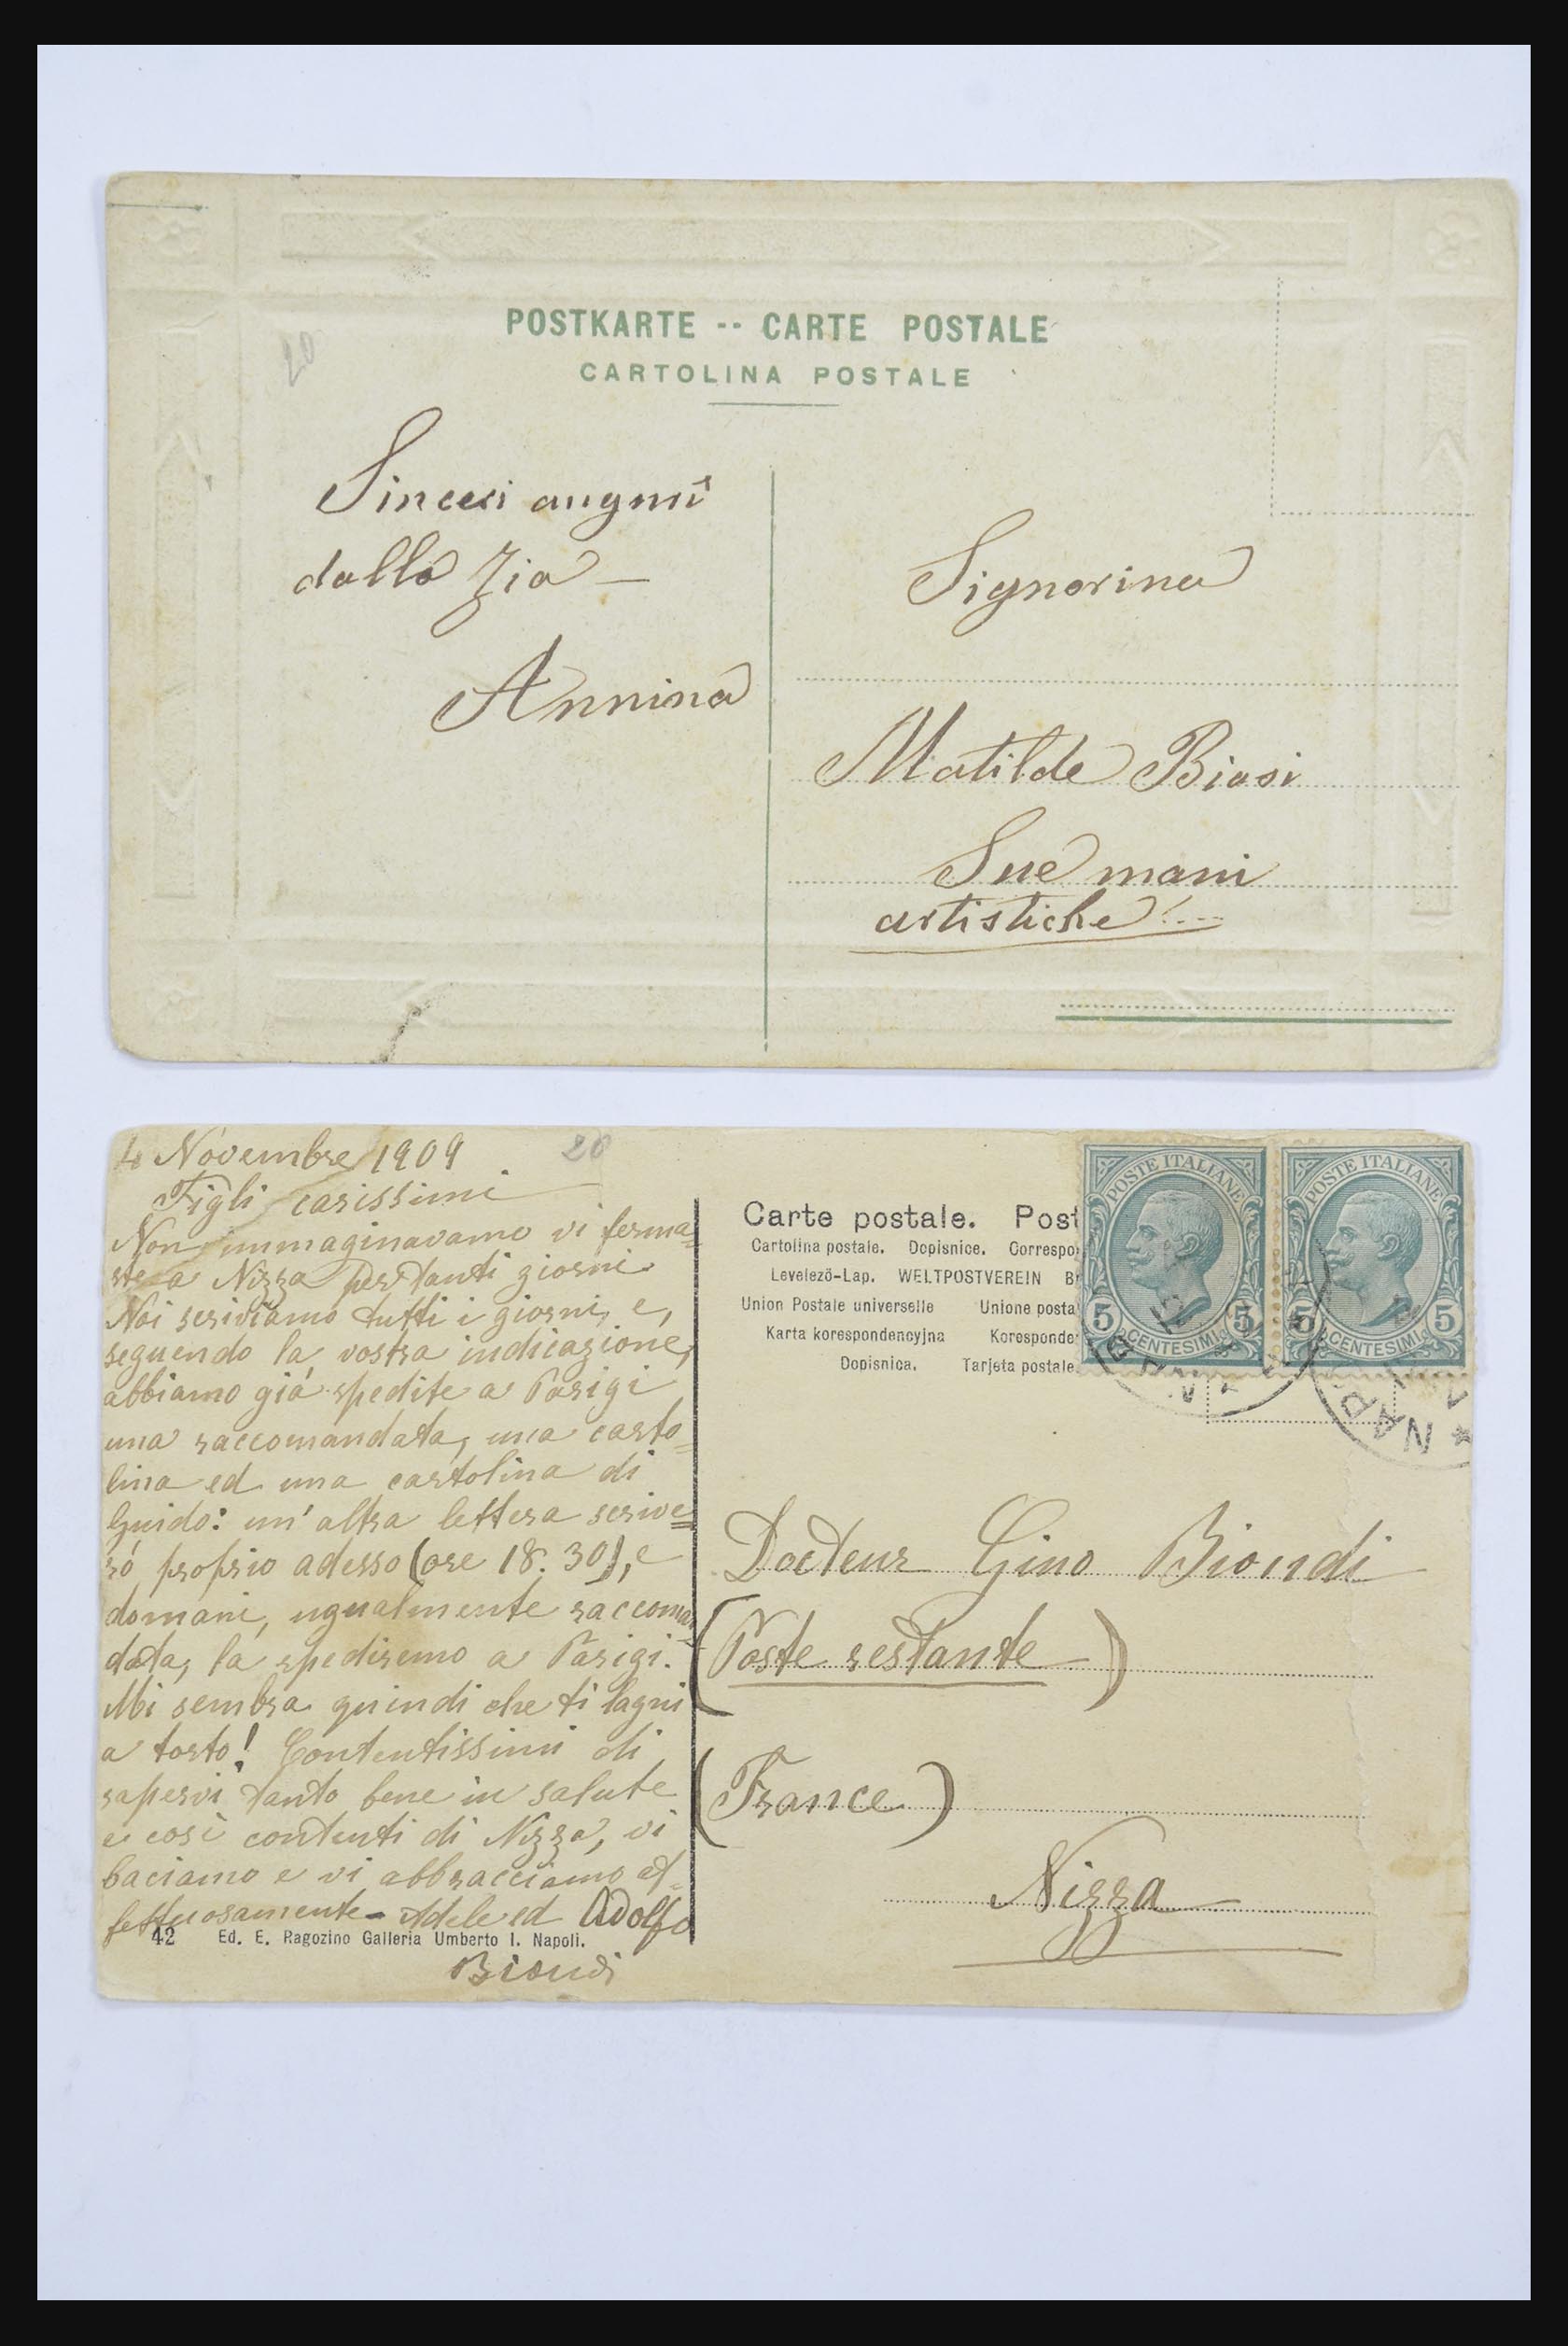 POSTKARTE -- CARTE POSTALE
CARTOLINA POSTALE
20
Sinceri auguri
dalla Zia —
Annina
Signorina
Matilde Biasi
Sue mani
artistiche!...
4 Novembre 1909
20
Figli carissimi
Non immaginavamo vi ferma=
ste a Nizza per tanti giorni.
Noi scriviamo tutti i giorni, e,
seguendo la vostra indicazione,
abbiamo già spedite a Parigi
una raccomandata, una carto=
lina ed una cartolina di
Guido: un'altra lettera scrive=
rò proprio adesso (ore 18.30), e
domani, ugualmente raccoman
data, la spediremo a Parigi.
Mi sembra quindi che ti lagni
a torto! Contentissimi di
sapervi tanto bene in salute
e così contenti di Nizza, vi
baciamo e vi abbracciamo af=
fettuosamente - Adele ed Adolfo
Biondi
42 Ed. E. Ragozino Galleria Umberto I. Napoli.
Carte postale. Post
Cartolina postale. Dopisnice. Correspo
Levelező-Lap. WELTPOSTVEREIN B
Union Postale universelle Unione posta
Karta korespondencyjna Koresponde
Dopisnica. Tarjeta postale.
POSTE ITALIANE
5 5
CENTESIMI
POSTE ITALIANE
5 5
CENTESIMI
NAP
Docteur Gino Biondi
(Poste restante)
(France)
Nizza